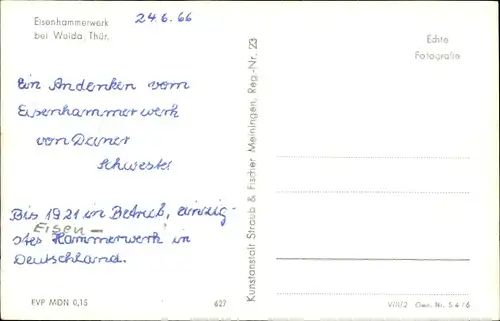 Eisenhammerwerk
bei Weida Thür.
24.6.66
Ein Andenken vom
Eisenhammerwerk
von Deiner
Schwester
Bis 1921 in Betrieb, einzig-
Eisen-
stes Hammerwerk in
Deutschland.
EVP MDN 0,15
627
Kunstanstalt Straub & Fischer Meiningen, Reg.-Nr. 23
Echte
Fotografie
V/11/2 Gen. Nr. S 4/6